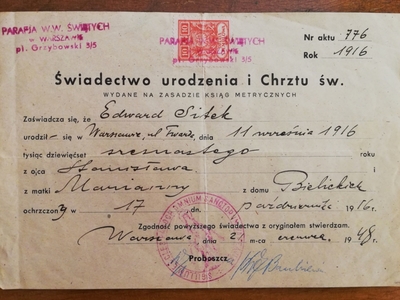 PARAFJA W.W. ŚWIĘTYCH
w WARSZAWIE
pl. Grzybowski 3/5
PARAFJA W.W. ŚWIĘTYCH
w WARSZAWIE
pl. Grzybowski 3/5
Nr aktu 776
Rok 1916
Świadectwo urodzenia i Chrztu św.
WYDANE NA ZASADZIE KSIĄG METRYCZNYCH
Zaświadcza się, że Edward Sitek
urodził się w Warszawie, ul. dnia 11 września 1916
tysiąc dziewięćset szesnastego roku
z ojca Stanisława
z matki Marianny z domu Bielickich
ochrzczony 17 dn. października 1916 r.
Zgodność powyższego świadectwa z oryginałem stwierdzam.
Warszawa, dnia 2 m-ca czerwca 1948 r.
Proboszcz